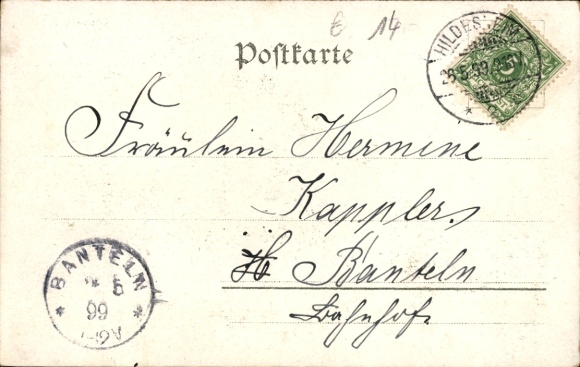 € 14
Postkarte
HILDESHEIM
26.5.99
Fräulein Hermine
Kappler
H Banteln
Bahnhof
BANTELN
5
99